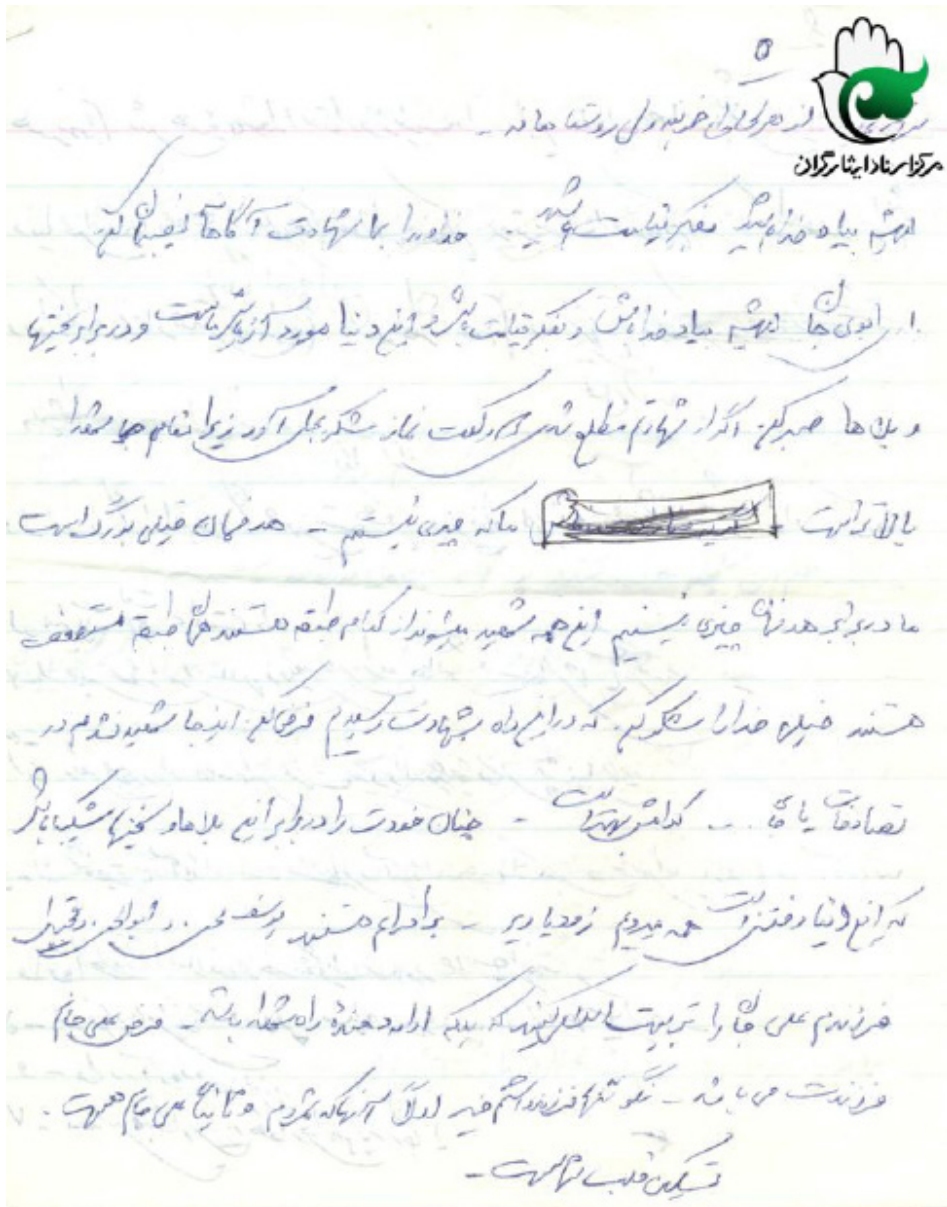 ۵
مرکز اسناد ایثارگران
از هر کجای خدا ولی روستا مانه -
همیشه بیاد خدا باشید بفکر قیامت باشید خداوندا با شهادت آگاهانه نصیبمان کن
جان همیشه بیاد خدا باش و بفکر قیامت باش و این دنیا مورد آزمایش ماست و در برابر سختیها
و بلاها صبر کن. اگر از شهادتم مطلع شدی دو رکعت نماز شکر بجای آور زیرا مقام شهدا
بالاتر است ما که چیزی نیستیم - هدفمان خیلی بزرگ است
ما در برابر هدفمان چیزی نیستیم این همه شهید میشوند از کدام طبقه هستند همان طبقه مستضعف
هستند خیلی خدا را شکر کن. که در این راه بشهادت رسیدم فرض کن اینجا شهید نشدم در
تصادفات یا ... کدامش بهتر است - چنان خودت را در برابر این بلاها و سختیها شکیبا باش
که این دنیا رفتنی است همه میرویم زود یا دیر - برادرانم هستند یوسف
فرزندم علی جان را تربیت اسلامی کنید که بلکه ادامه دهنده راه شهدا باشد - فرض علی جانم
فرزندت می باشد - نگو تنها فرزند داشتم خیر اولاً آنهاکه مردم و ثانیاً علی جانم هست.
تسکین قلب شماست -